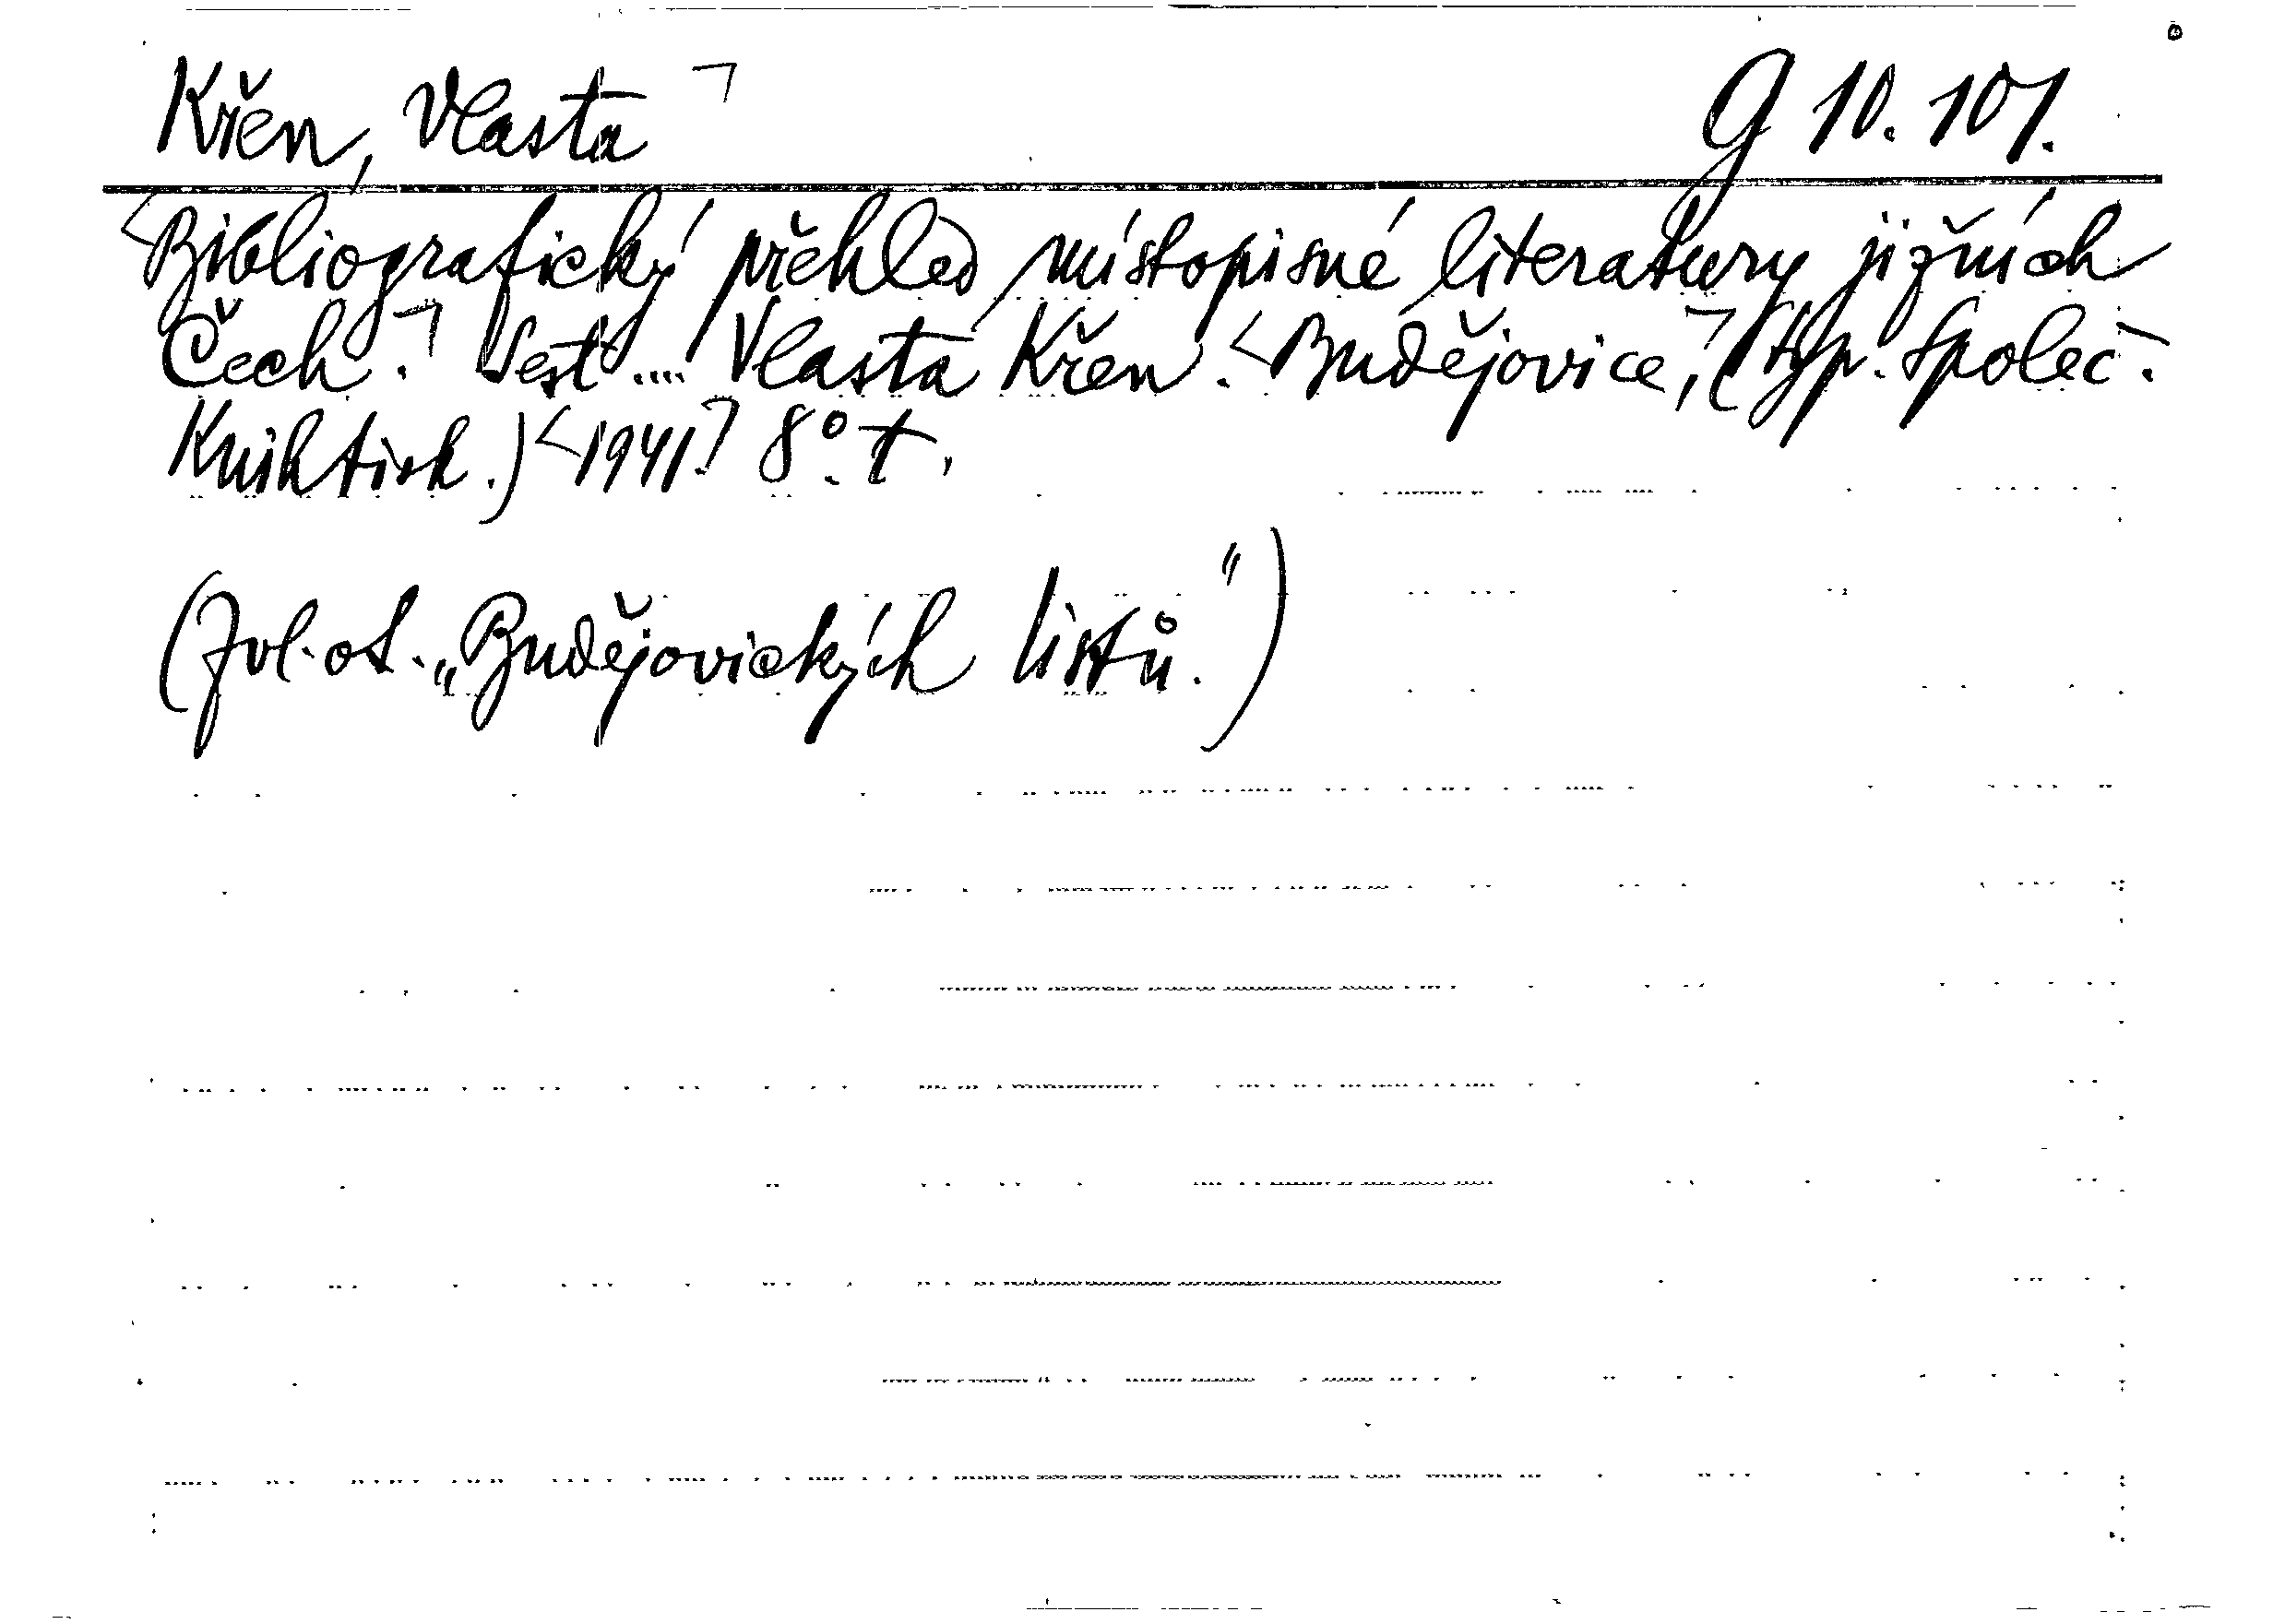 Křen, Vlasta ㄱ G 10.107.
<Bibliografický přehled místopisné literatury jižních
Čech.ㄱ Sest.... Vlasta Křen. <Budějovice,ㄱ (typ. Společ.
Knihtisk.) <1941.ㄱ 8°. †.
(Zvl. ot. „Budějovických listů.")